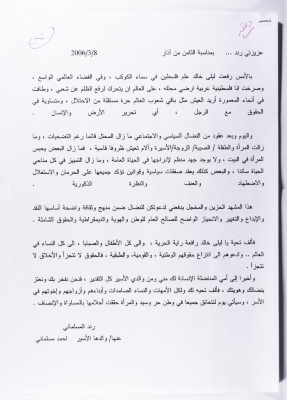 عزيزتي رند ... بمناسبة الثامن من آذار 2006/3/8
بالأمس رفعت ليلى خالد علم فلسطين في سماء الكوكب ، وفي الفضاء العالمي الواسع ،
وصرخت انا فلسطينية عربية ارضي محتله ، على العالم ان يتحرك لرفع الظلم عن شعبي ، وطافت
في أنحاء المعمورة أريد العيش مثل باقي شعوب العالم حرة مستقلة من الاحتلال ، ومتساوية في
الحقوق مع الرجل ، أي تحرير الأرض والإنسان .
واليوم وبعد عقود من النضال السياسي والاجتماعي ما زال المحتل قائما رغم التضحيات ، وما
زالت المرأة والطفلة / الصبية/ الزوجة/الأسيرة والأم تعيش ظروفا قاسية ، فما زال البعض يحبس
المرأة في البيت ، ولا يوجد جهد منظم لإدراجها في الحياة العامة ، وما زال التمييز في كل مناحي
الحياة سائدا ، والبعض كذلك يعقد صفقات سياسية وقوانين تؤكد جميعها على الحرمان والاستغلال
والاضطهاد والعنف والنظرة الذكورية .
هذا المشهد الحزين والمخجل يدفعني لدعوتكن للنضال ضمن منهج وثقافة واضحة أساسها النقد
والإبداع والتغيير والانحياز الواضح للصالح العام للوطن والهوية والديمقراطية والحقوق الشاملة .
فألف تحية يا ليلى خالد رافعة راية الحرية ، والى كل الأطفال والصبايا ، الى كل النساء في
العالم .. وادعوهم الى انتزاع حقوقهم الوطنية ، والقومية، والطبقية ، فالحقوق لا تتجزأ والأخلاق لا
تتجزأ .
وأخيرا إلى أمي المناضلة الإنسانة لك مني ومن والدي الأسير كل التقدير ، فنحن نفخر بك ونعتز
بنضالك وهويتك ، فألف تحية لك ولكل الأمهات والنساء الصامدات وأبناءهم وأزواجهم وإخوتهم في
الأسر ، وسيأتي يوم لنتعانق جميعا في وطن حر وسيد والمرأة حققت أحلامها بالمساواة والإنصاف .
رند المسلماني
عنها/ والدها الأسير احمد مسلماني